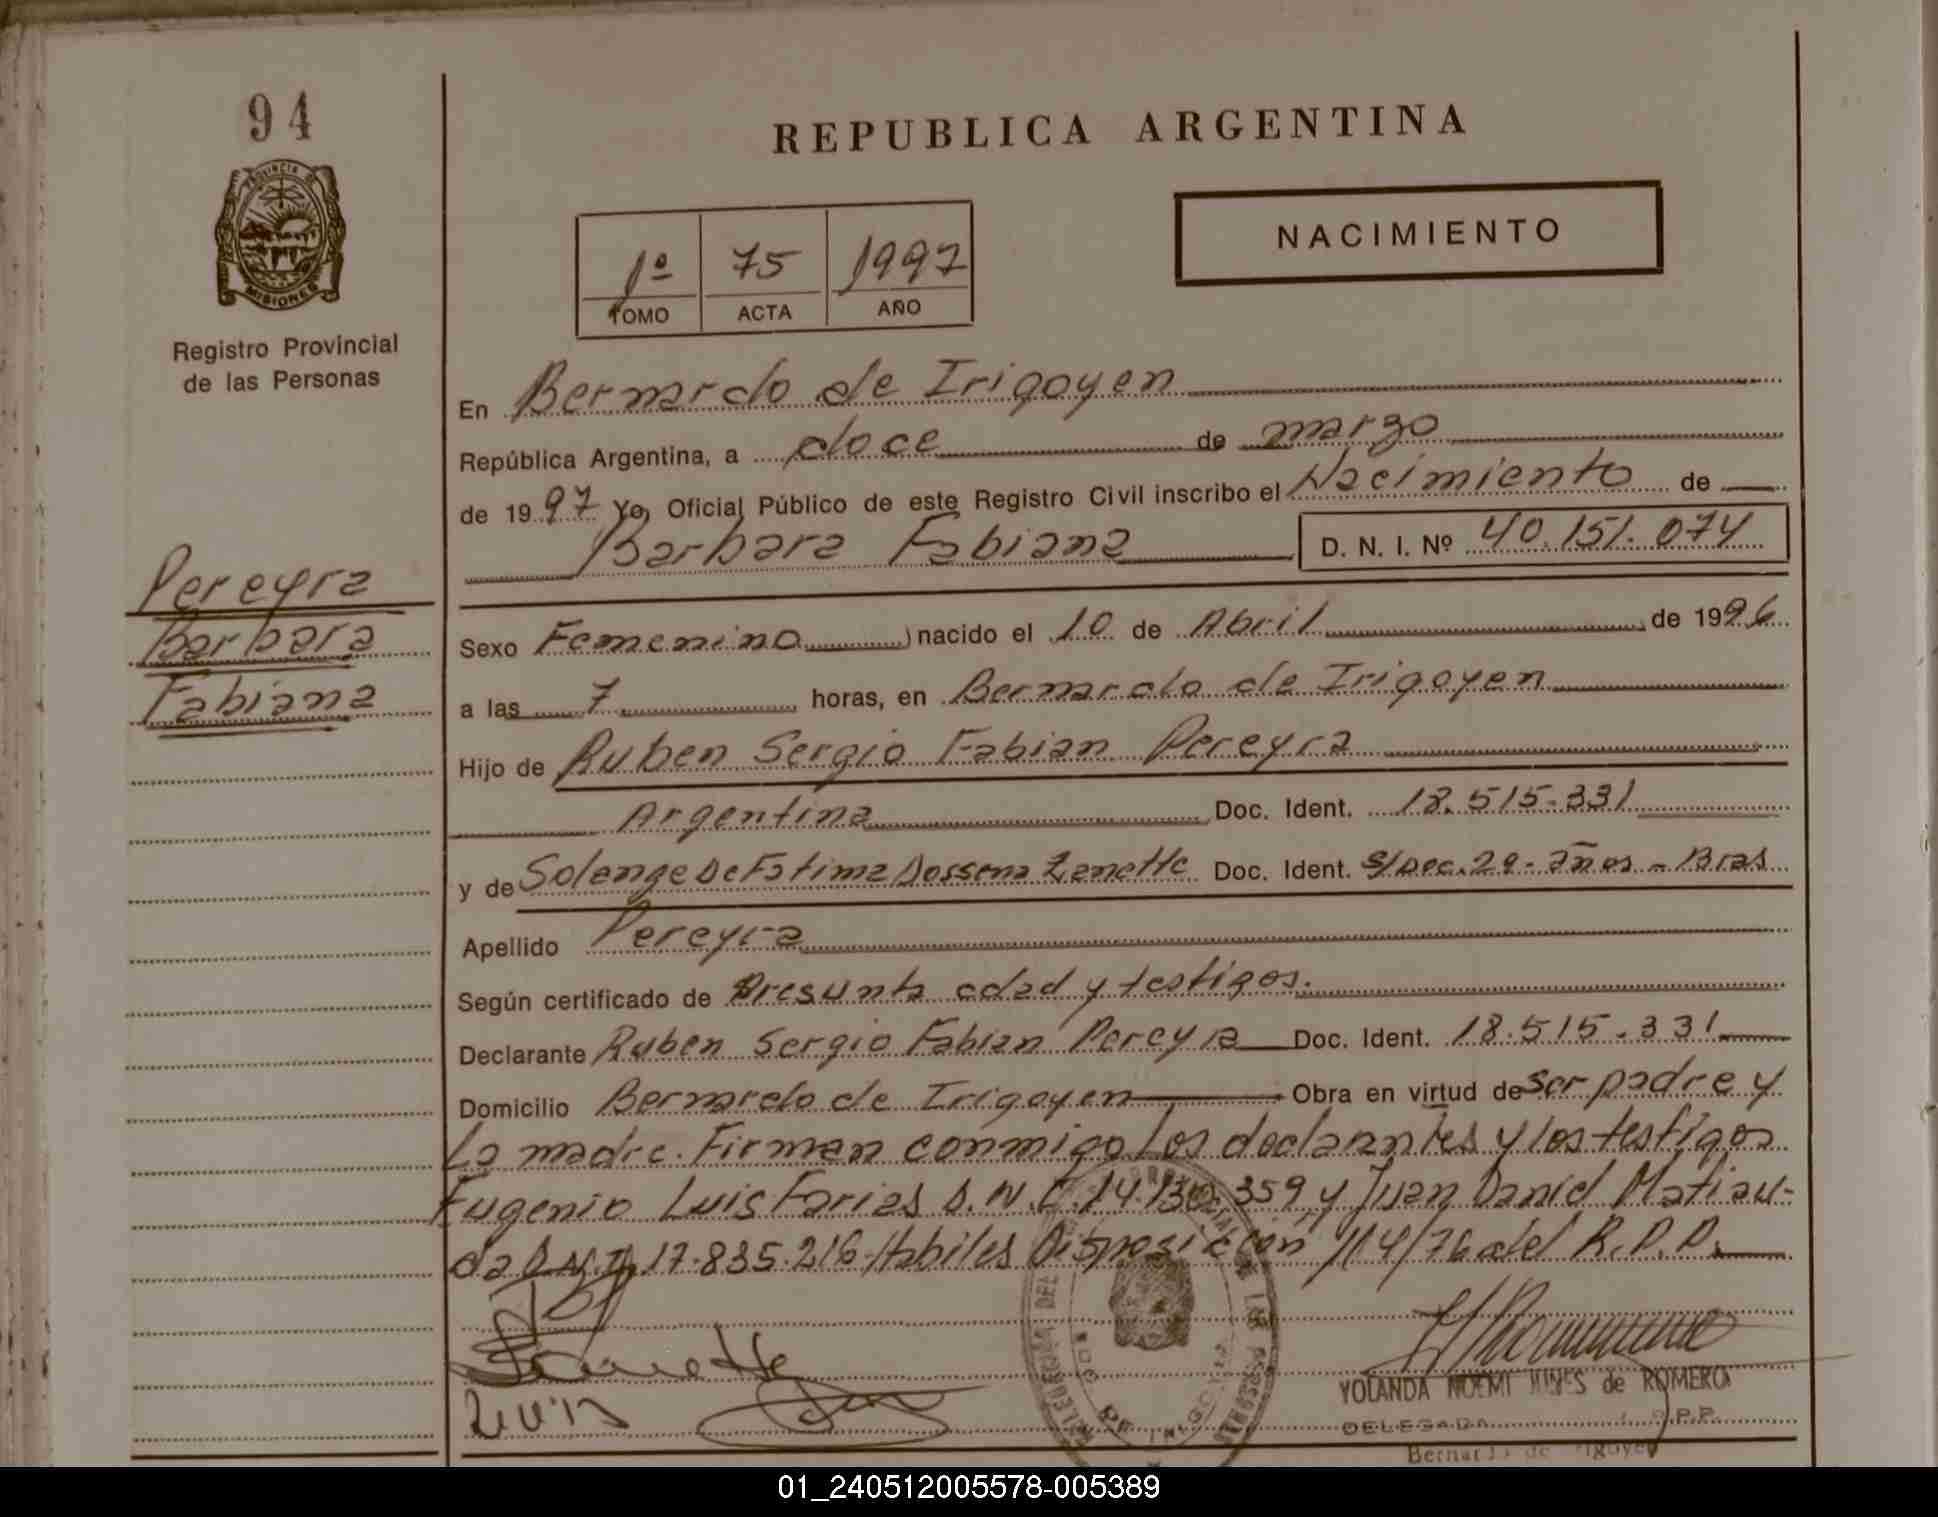 94
PROVINCIA DE
MISIONES
Registro Provincial
de las Personas
Pereyra
Barbara
Fabiana
REPUBLICA ARGENTINA
NACIMIENTO
1º 75 1997
TOMO ACTA AÑO
En Bernardo de Irigoyen
República Argentina, a doce de marzo
de 1997 Yo, Oficial Público de este Registro Civil inscribo el Nacimiento de
Barbara Fabiana D. N. I. Nº 40.151.074
Sexo Femenino nacido el 10 de Abril de 1996
a las 7 horas, en Bernardo de Irigoyen
Hijo de Ruben Sergio Fabian Pereyra
Argentina Doc. Ident. 18.515.331
y de Solange De Fatima Dossena Zanette Doc. Ident. S/Doc. 29- años - Bras
Apellido Pereyra
Según certificado de Presunta edad y testigos.
Declarante Ruben Sergio Fabian Pereyra Doc. Ident. 18.515.331
Domicilio Bernardo de Irigoyen Obra en virtud de ser padre y
La madre. Firman conmigo los declarantes y los testigos
Eugenio Luis Farias D.N.I. 359 y Juan Daniel Matiau-
da D.N.I. 17.835.216 Habiles Disposición 114/76 del R.P.P.
YOLANDA NOEMI de ROMERO
DELEGADA R.P.P.
Bernardo de Irigoyen
01_240512005578-005389